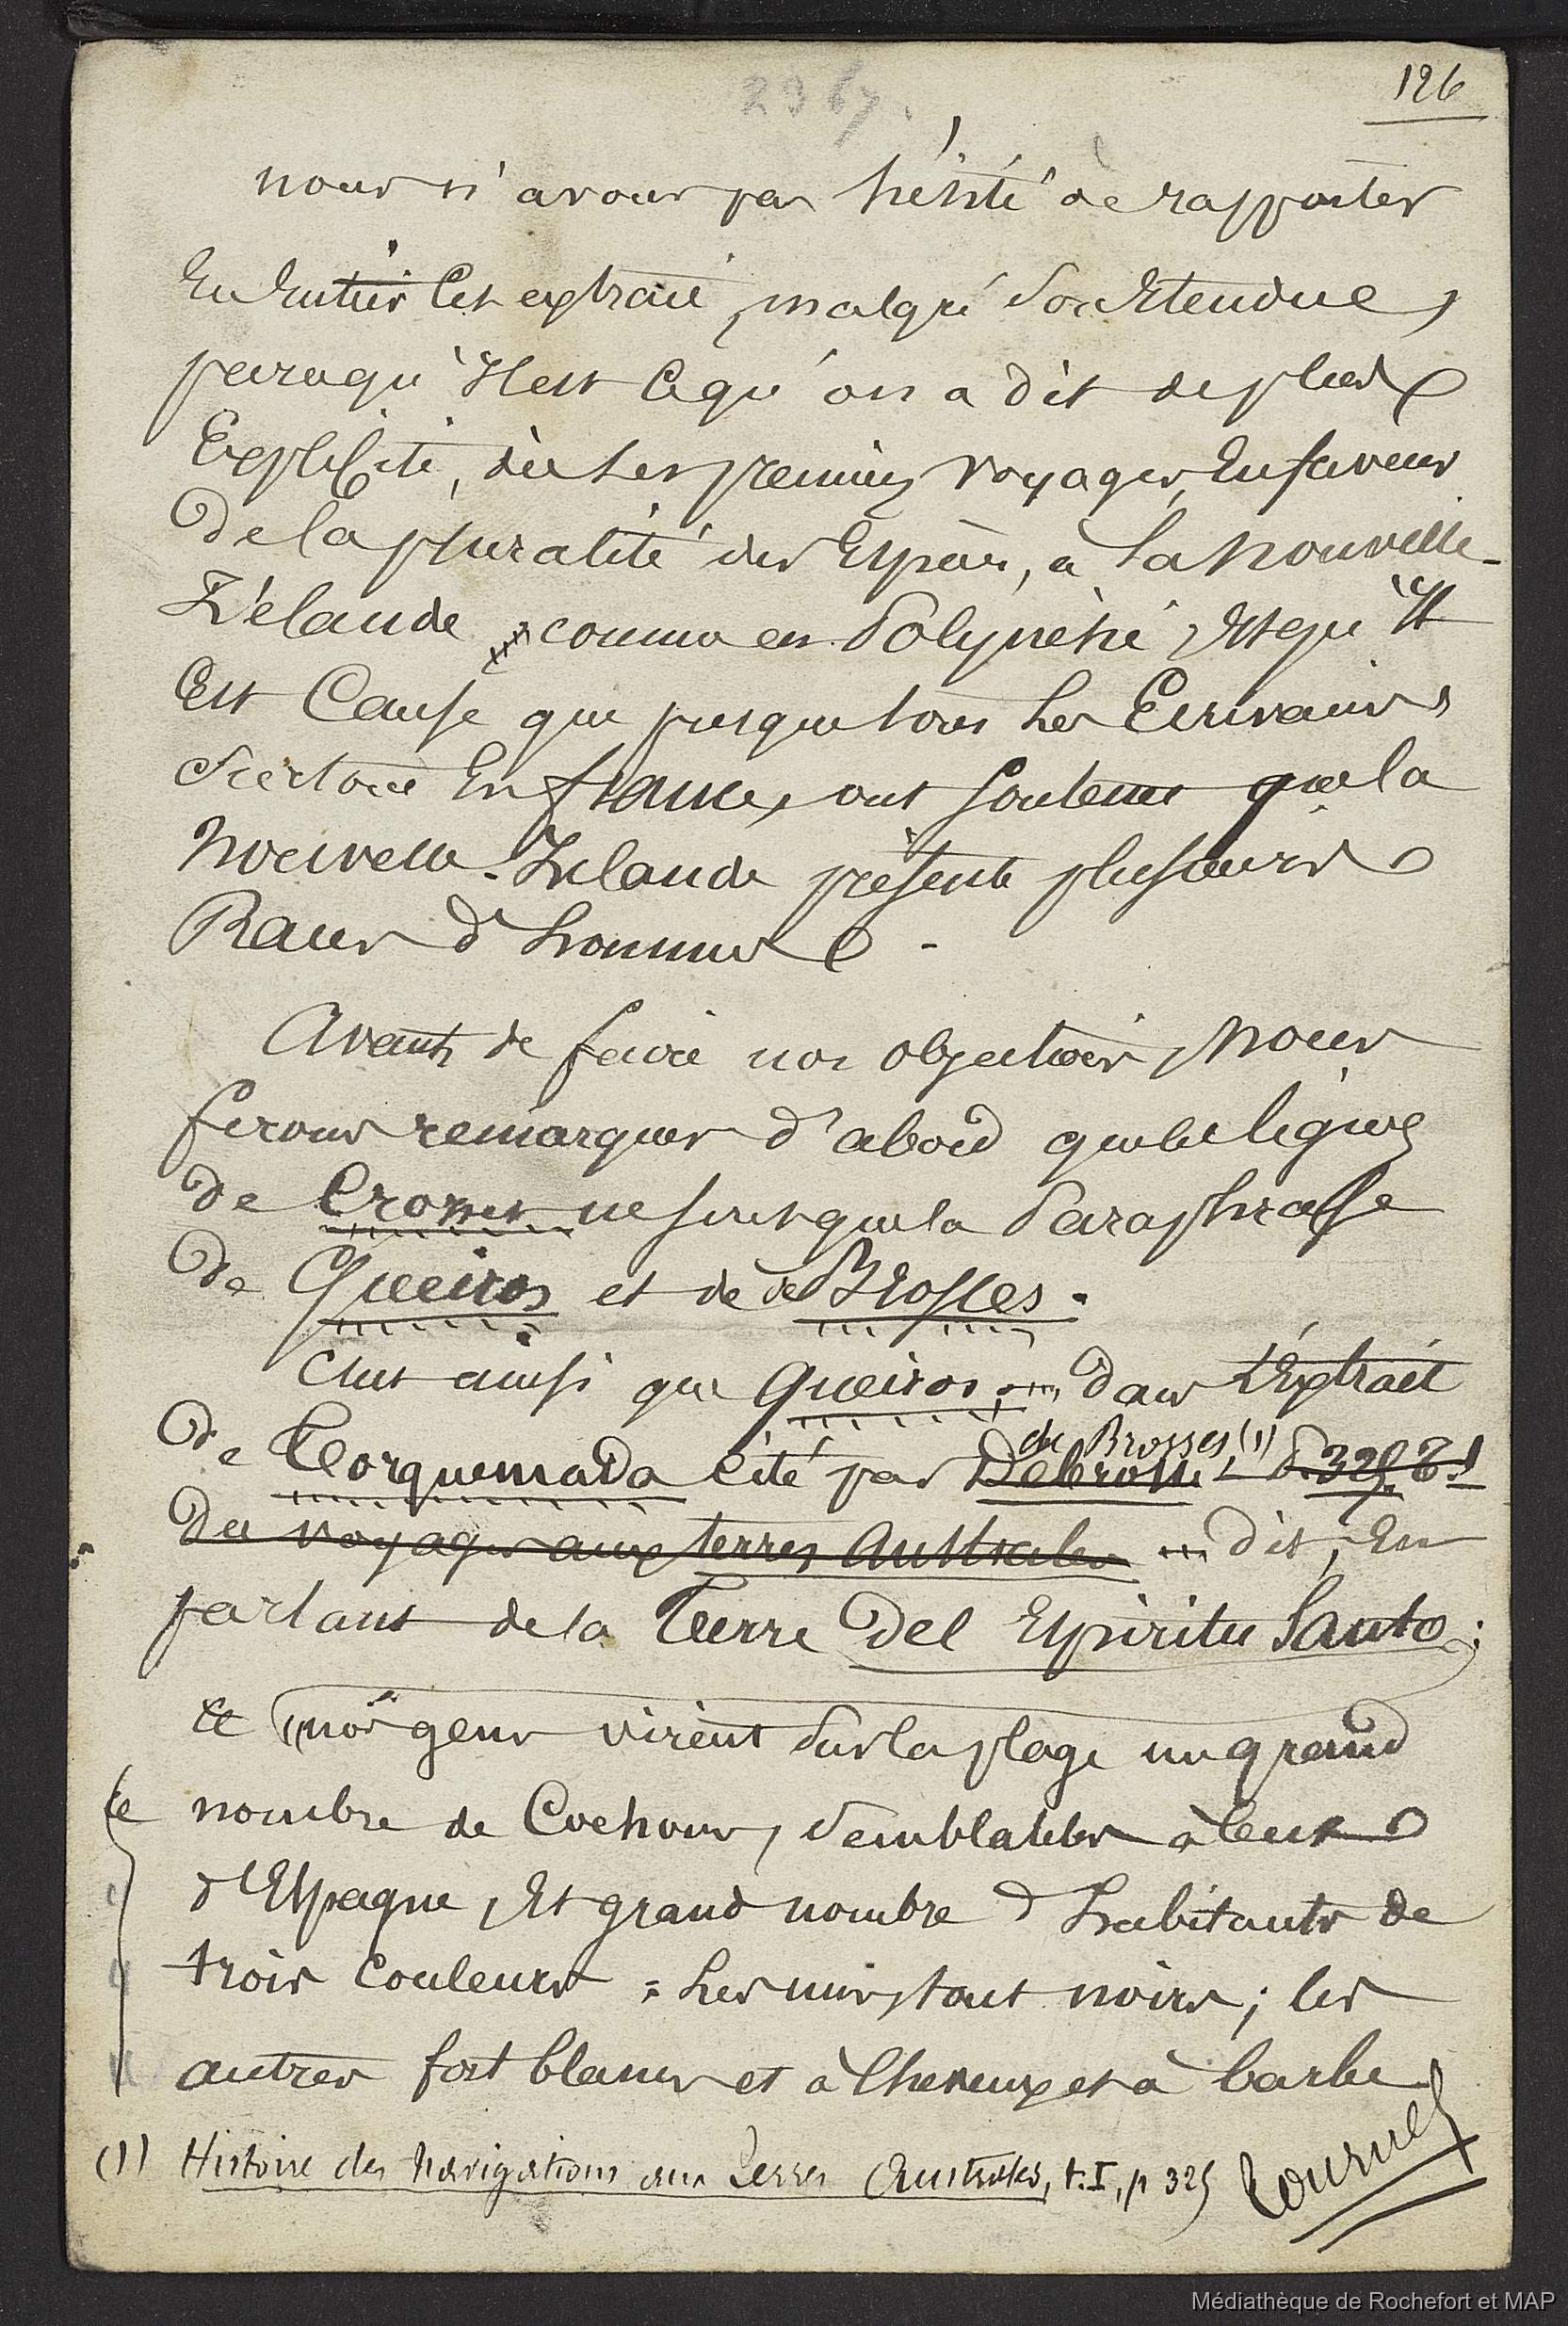 126
2967.
nous n'avons pas hésité à rapporter
En Entier Cet extrait, malgré Son Etendue,
parce qu'Il est Ce qu'on a dit de plus
Explicite, dès Les premiers voyages, En faveur
De la pluralité des Espèces, à La Nouvelle-
Zélande comme en Polynésie, Et qu'Il
Est Cause que presque tous Les Ecrivains,
Surtout En france, ont Soutenu que la
Nouvelle-Zélande présente plusieurs
Races d'hommes.
Avant de faire nos objections, nous
ferons remarquer d'abord que les lignes
de Crozet ne sont que la Paraphrase
de Queiros et de de Brosses.
C'est ainsi que Queiros, dans L'Extrait
de Torquemada Cité par Debrosse de Brosses (1) P. 325 T. 1
Des voyages aux terres Australes dit, En
parlant de la Terre Del Espiritu Santo :
« nos gens virent Sur la plage un grand
« nombre de Cochons, Semblables à Ceux
d'Espagne, Et grand nombre d'habitants de
trois Couleurs : Les uns, tout noirs ; les
autres fort blancs et à Cheveux et à barbe
(1) Histoire des Navigations aux Terres Australes, t. I, p 325
tournez
Médiathèque de Rochefort et MAP